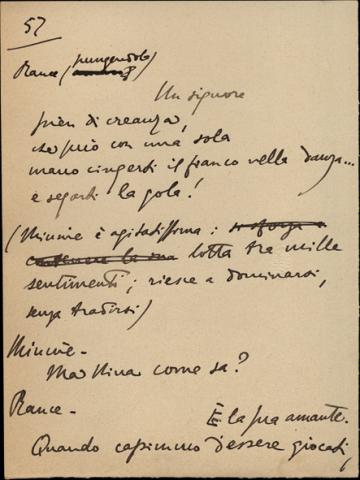 57
Rance (pungendola)
Un signore
pien di creanza,
che può con una sola
mano cingerti il fianco nella danza...
e segarti la gola!
(Minnie è agitatissima: si sforza a
contenere la sua lotta tra mille
sentimenti; riesce a dominarsi,
senza tradirsi)
Minnie -
Ma Nina come sa?
Rance -
È la sua amante.
Quando capimmo d'essere giocati,